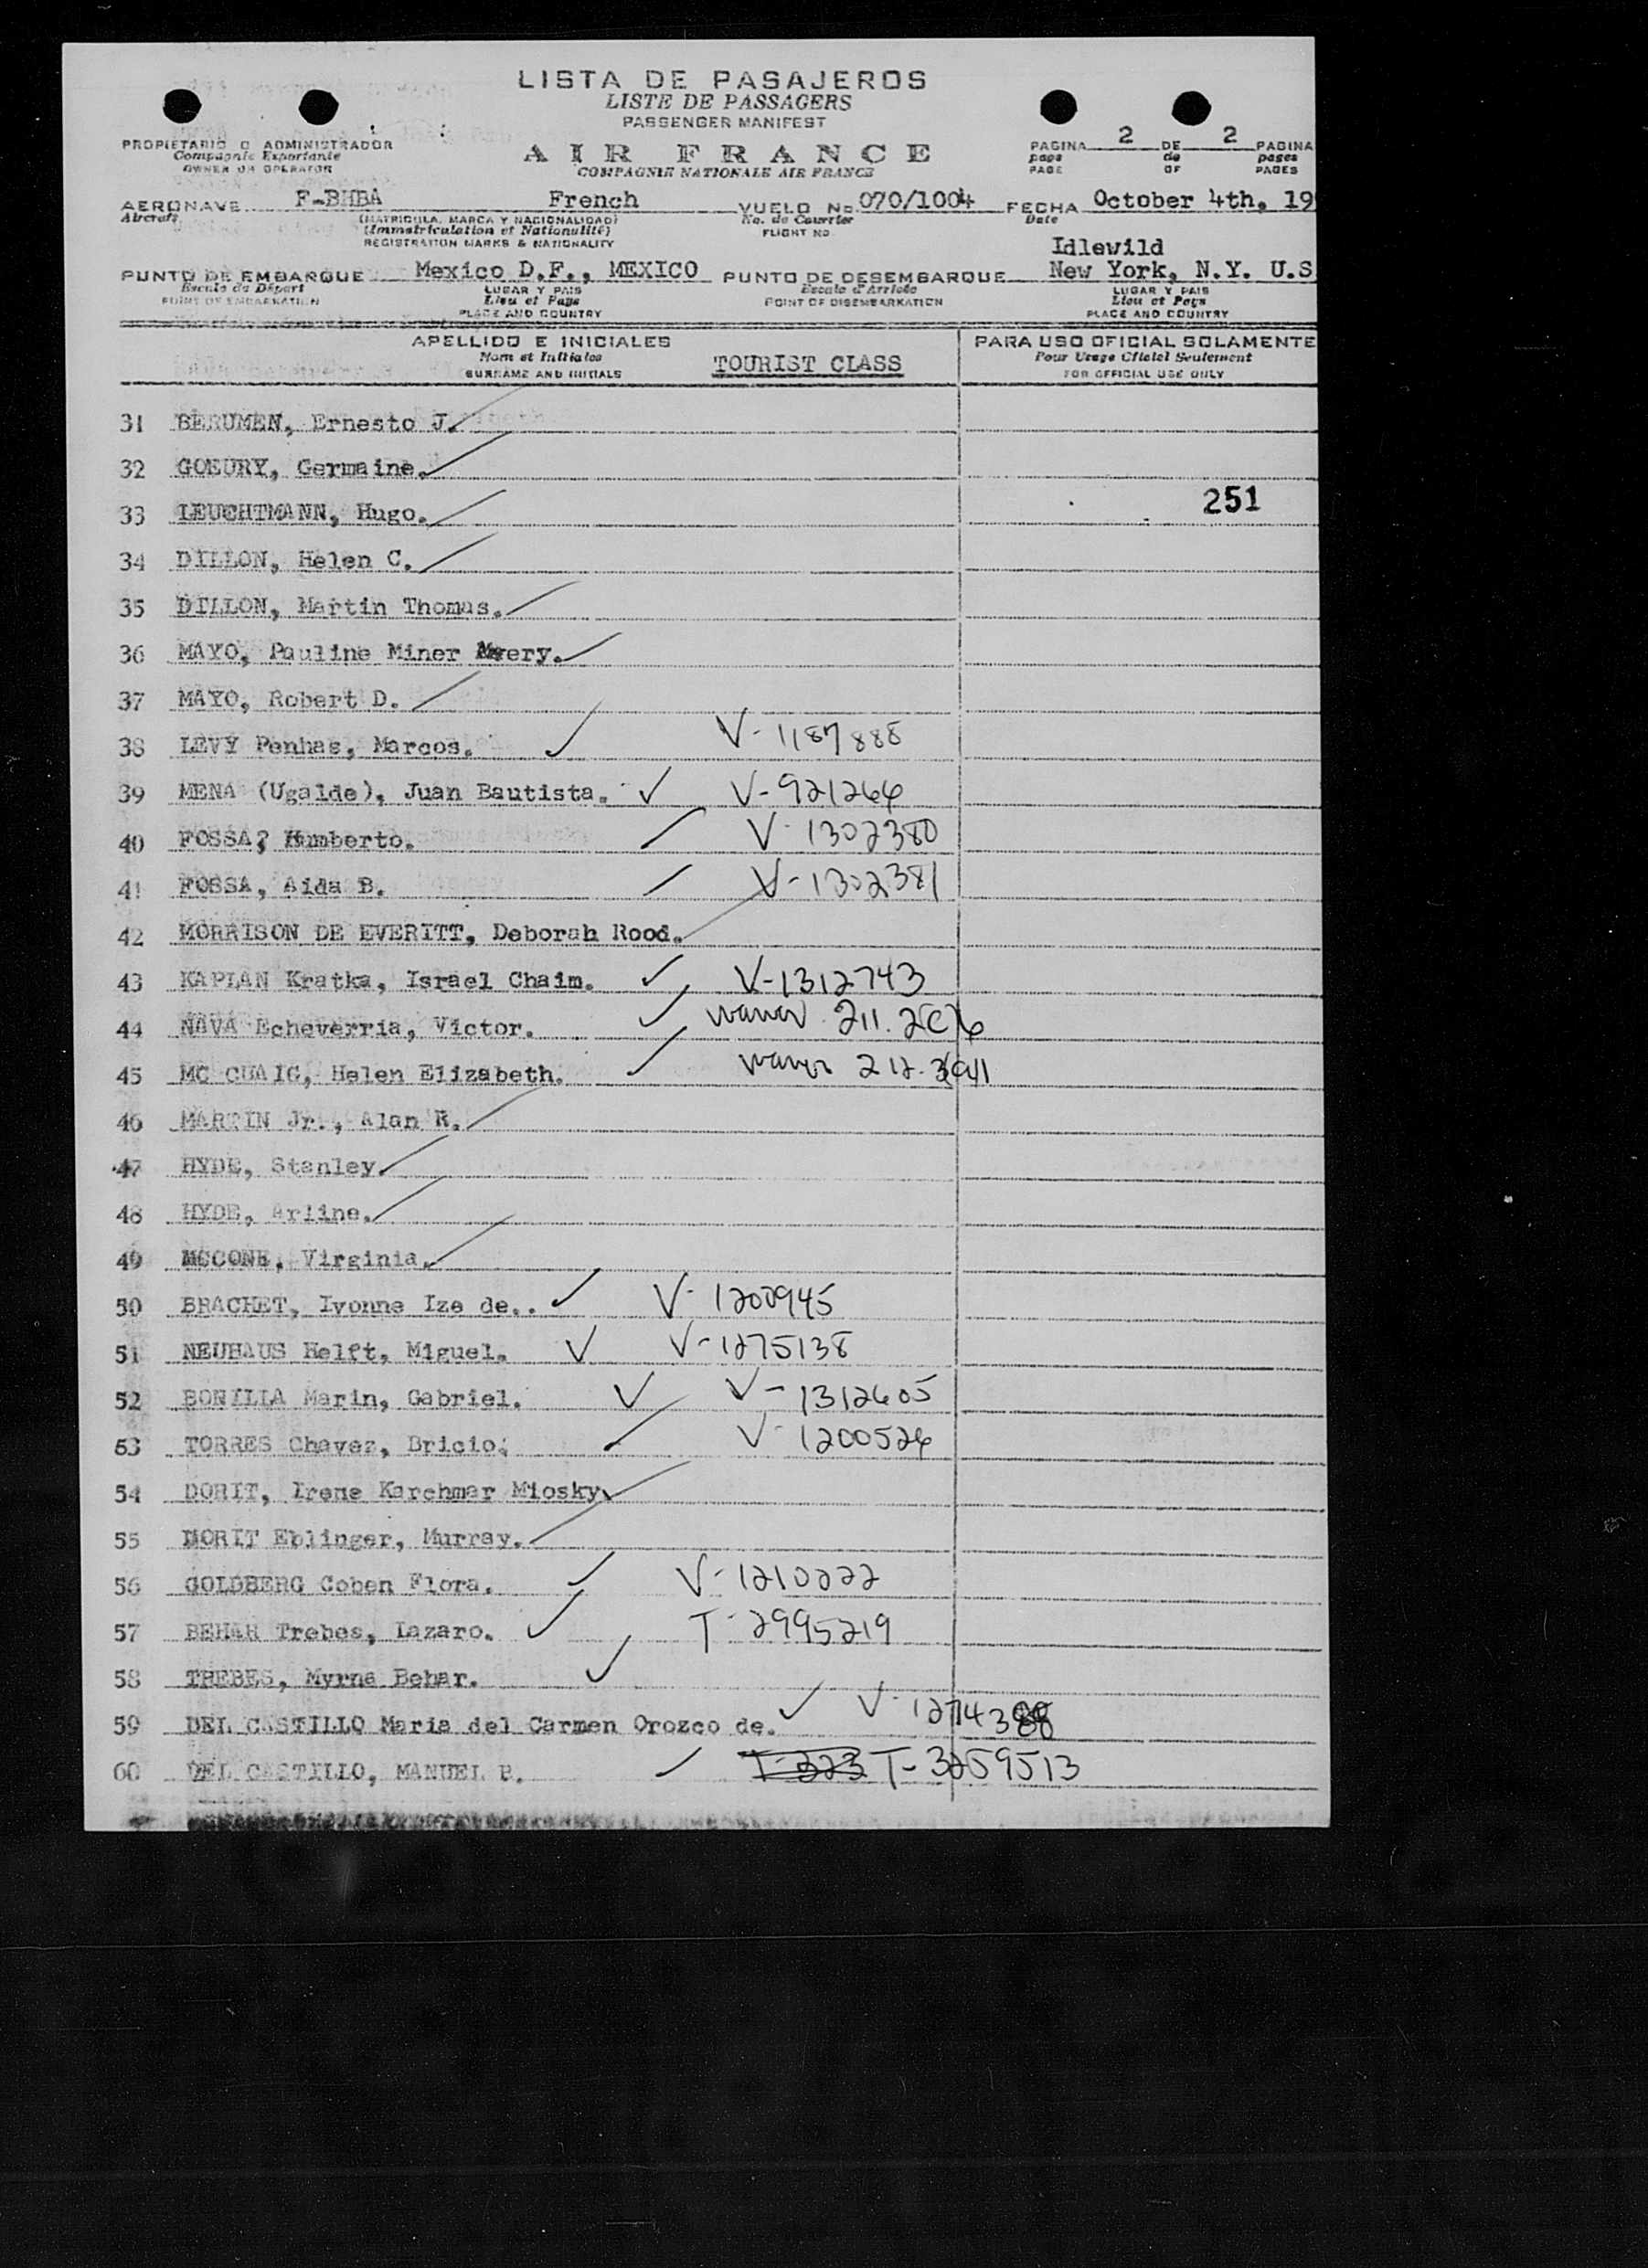 LISTA DE PASAJEROS
LISTE DE PASSAGERS
PASSENGER MANIFEST
PROPIETARIO O ADMINISTRADOR
Compagnie Exportante
OWNER OR OPERATOR
AIR FRANCE
COMPAGNIE NATIONALE AIR FRANCE
PAGINA 2 DE 2 PAGINA
page de pages
PAGE OF PAGES
AERONAVE F-BHBA French VUELO No. 070/1004 FECHA October 4th, 19
Aircraft (MATRICULA, MARCA Y NACIONALIDAD) No. de Courrier Date
(Immatriculation et Nationalité) FLIGHT NO
REGISTRATION MARKS & NATIONALITY
Idlewild
PUNTO DE EMBARQUE Mexico D.F., MEXICO PUNTO DE DESEMBARQUE New York, N.Y. U.S
Escale de Départ LUGAR Y PAIS Escale d'Arrivée LUGAR Y PAIS
POINT OF EMBARKATION Lieu et Pays POINT OF DISEMBARKATION Lieu et Pays
PLACE AND COUNTRY PLACE AND COUNTRY
APELLIDO E INICIALES PARA USO OFICIAL SOLAMENTE
Nom et Initiales TOURIST CLASS Pour Usage Officiel Seulement
SURNAME AND INITIALS FOR OFFICIAL USE ONLY
31 BERUMEN, Ernesto J.
32 GOEURY, Germaine.
33 LEUCHTMANN, Hugo. 251
34 DILLON, Helen C.
35 DILLON, Martin Thomas.
36 MAYO, Pauline Miner
37 MAYO, Robert D.
38 LEVY Penhas, Marcos. V-1187888
39 MENA (Ugalde), Juan Bautista. V-921264
40 FOSSA? Humberto. V-1302380
41 FOSSA, Aida B. V-1302381
42 MORRISON DE EVERITT, Deborah Rood.
43 KAPLAN Kratka, Israel Chaim. V-1312743
44 NAVA Echeverria, Victor. 211.
45 MC CUAIG, Helen Elizabeth.
46 MARTIN Jr., Alan R.
47 HYDE, Stanley.
48 HYDE, Arline.
49 MCCONE, Virginia.
50 BRACHET, Ivonne Ize de.. V-1200945
51 NEUHAUS Helft, Miguel. V-1275138
52 BONILLA Marin, Gabriel. V-1312605
53 TORRES Chavez, Bricio. V-1200524
54 DORIT, Irene Karchmar Miosky
55 DORIT Eblinger, Murray.
56 GOLDBERG Cohen Flora. V-1210222
57 BEHAR Trebes, Lazaro. T-2995219
58 TREBES, Myrna Behar.
59 DEL CASTILLO Maria del Carmen Orozco de.
60 DEL CASTILLO, MANUEL B. T-223 T-3259513